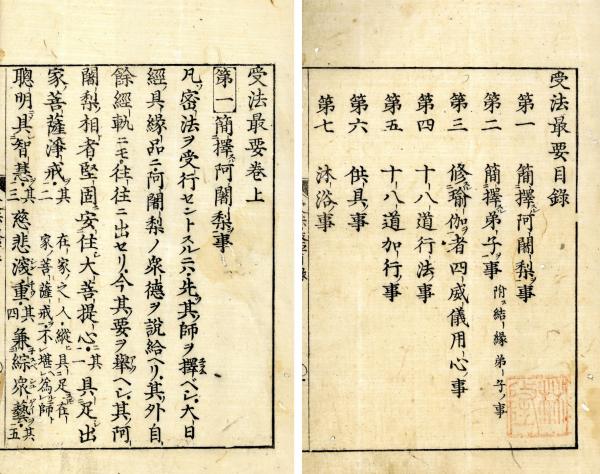 受法最要目録
第一　簡擇阿闍梨事
第二　簡擇弟子事　附ス結縁弟子ノ事
第三　修瑜伽者四威儀用心事
第四　十八道行法事
第五　十八道加行事
第六　供具事
第七　沐浴事
受法最要卷上
第一簡擇阿闍梨事
凡ソ密法ヲ受行セントスルニハ先其師ヲ擇ベシ大日
經具縁品ニ阿闍梨ノ衆德ヲ説給ヘリ其外自
餘經軌ニモ往往ニ出セリ今其要ヲ擧ヘシ其阿
闍梨相者堅固安住大菩提心其一具足出
家菩薩淨戒其二在家之人縱具足在家菩薩戒不堪為師
聰明具智慧其三慈悲淺重其四兼綜衆藝其五